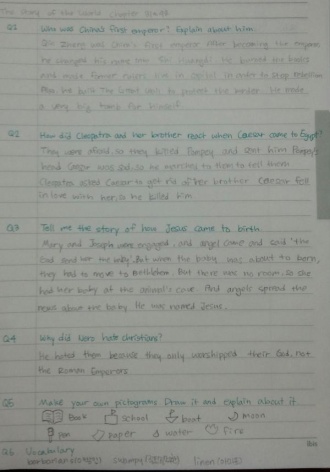 The Story of the World Chapter
Q1 Who was China's first emperor? Explain about him.
Qin Zheng was China's first emperor. After becoming the emperor,
he changed his name into Shi Huangdi. He burned the books
and made former rulers live in capital in order to stop rebellion
Plan. he built The Great Wall to protect the border. He made
a very big tomb for himself
Q2 How did Cleopatra and her brother react when Caesar came to Egypt?
They were afraid, so they killed Pompey and sent him Pompey's
head. Caesar was sad, so he marched to them to tell them
Cleopatra asked Caesar to get rid of her brother. Caesar fell
in love with her, so he killed him
Q3 Tell me the story of how Jesus came to birth.
Mary and Joseph were engaged, and angel came and said "the
God send her the baby". But when the baby was about to born,
they had to move to Bethlehem. But there was no room, so she
had her baby at the animal's cave. And angels spread the
news about the baby. He was named Jesus.
Q4 Why did Nero hate christians?
He hated them because they only worshipped their God, not
the Roman Emperors
Q5 Make your own pictograms. Draw it and explain about it
Book school boat moon
pen paper water Fire
Q6 Vocabulary
barbarian